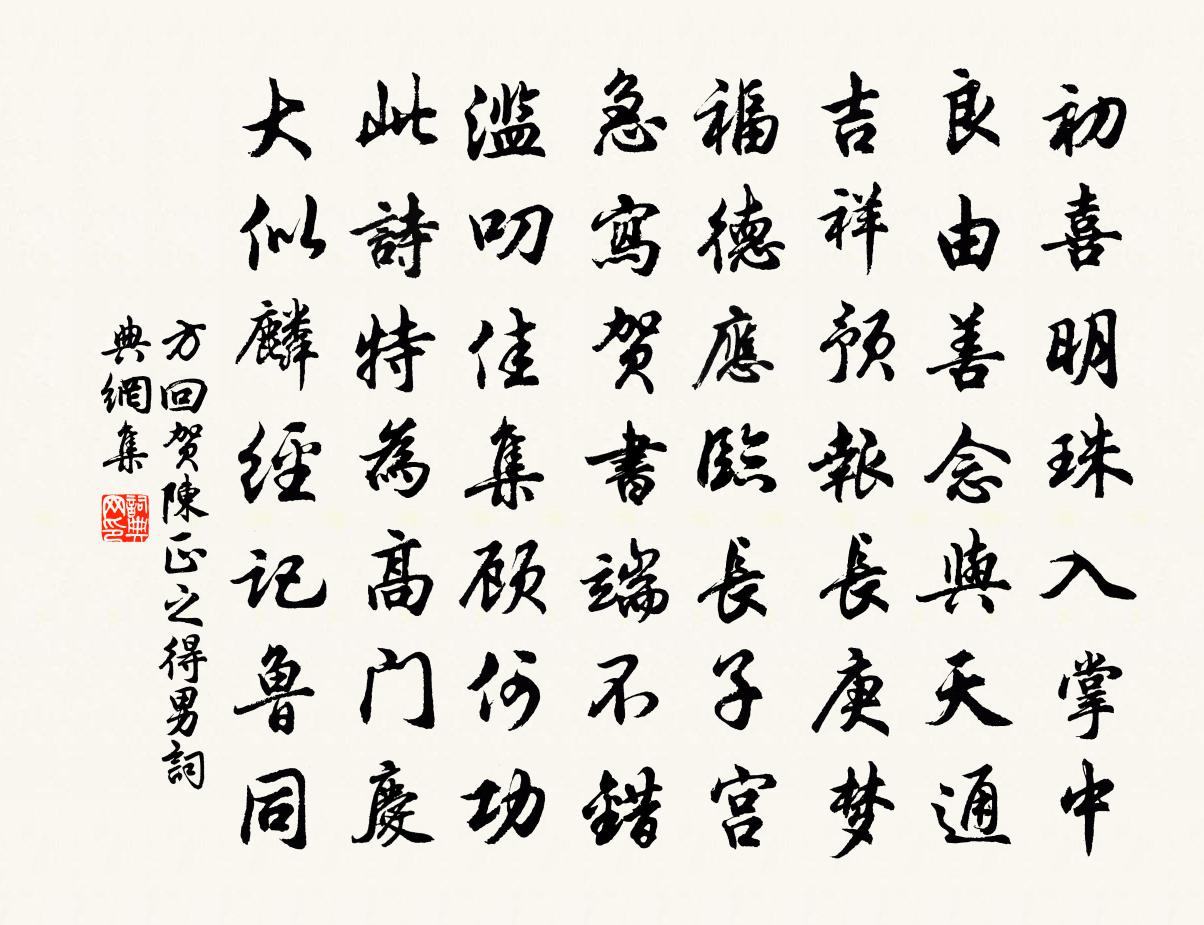 初喜明珠入掌中
良由善念與天通
吉祥預報長庚梦
福德應臨長子宮
急寫贺書端不錯
滥叨佳集顾何功
此詩特為高门慶
大似麟經記魯同
方回贺陳正之得男詞
典網集
詞典网印